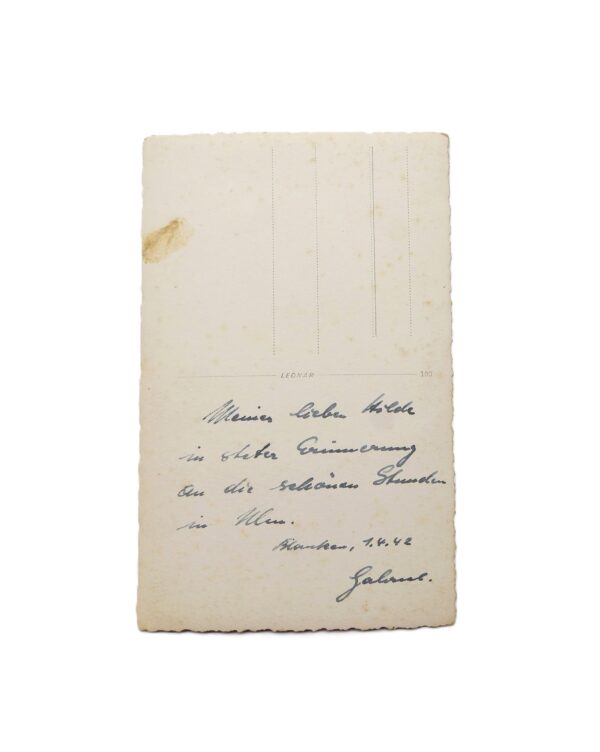 LEONAR 100
Meiner lieben Hilde
in steter Erinnerung
an die schönen Stunden
in Ulm.
1.4.42